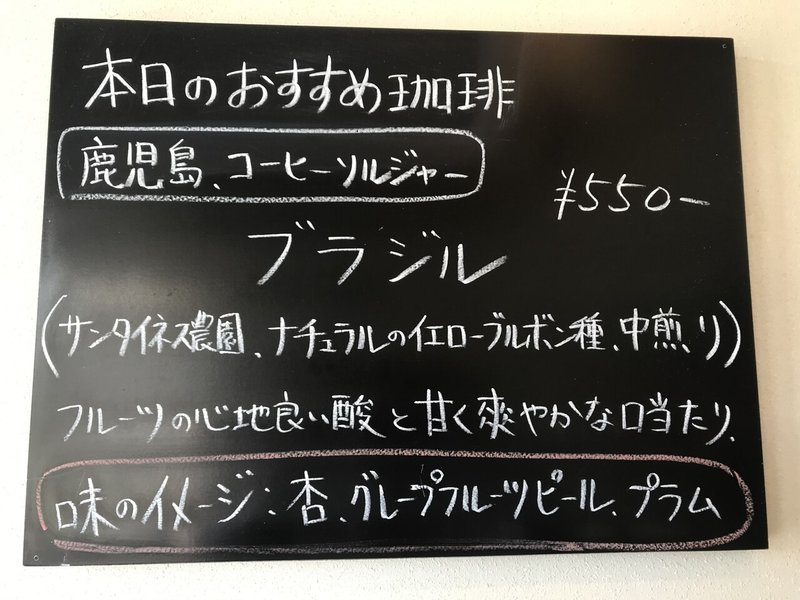 本日のおすすめ珈琲
鹿児島、コーヒーソルジャー
¥550-
ブラジル
(サンタイネス農園、ナチュラルのイエローブルボン種、中煎り)
フルーツの心地良い酸と甘く爽やかな口当たり、
味のイメージ:杏、グレープフルーツピール、プラム